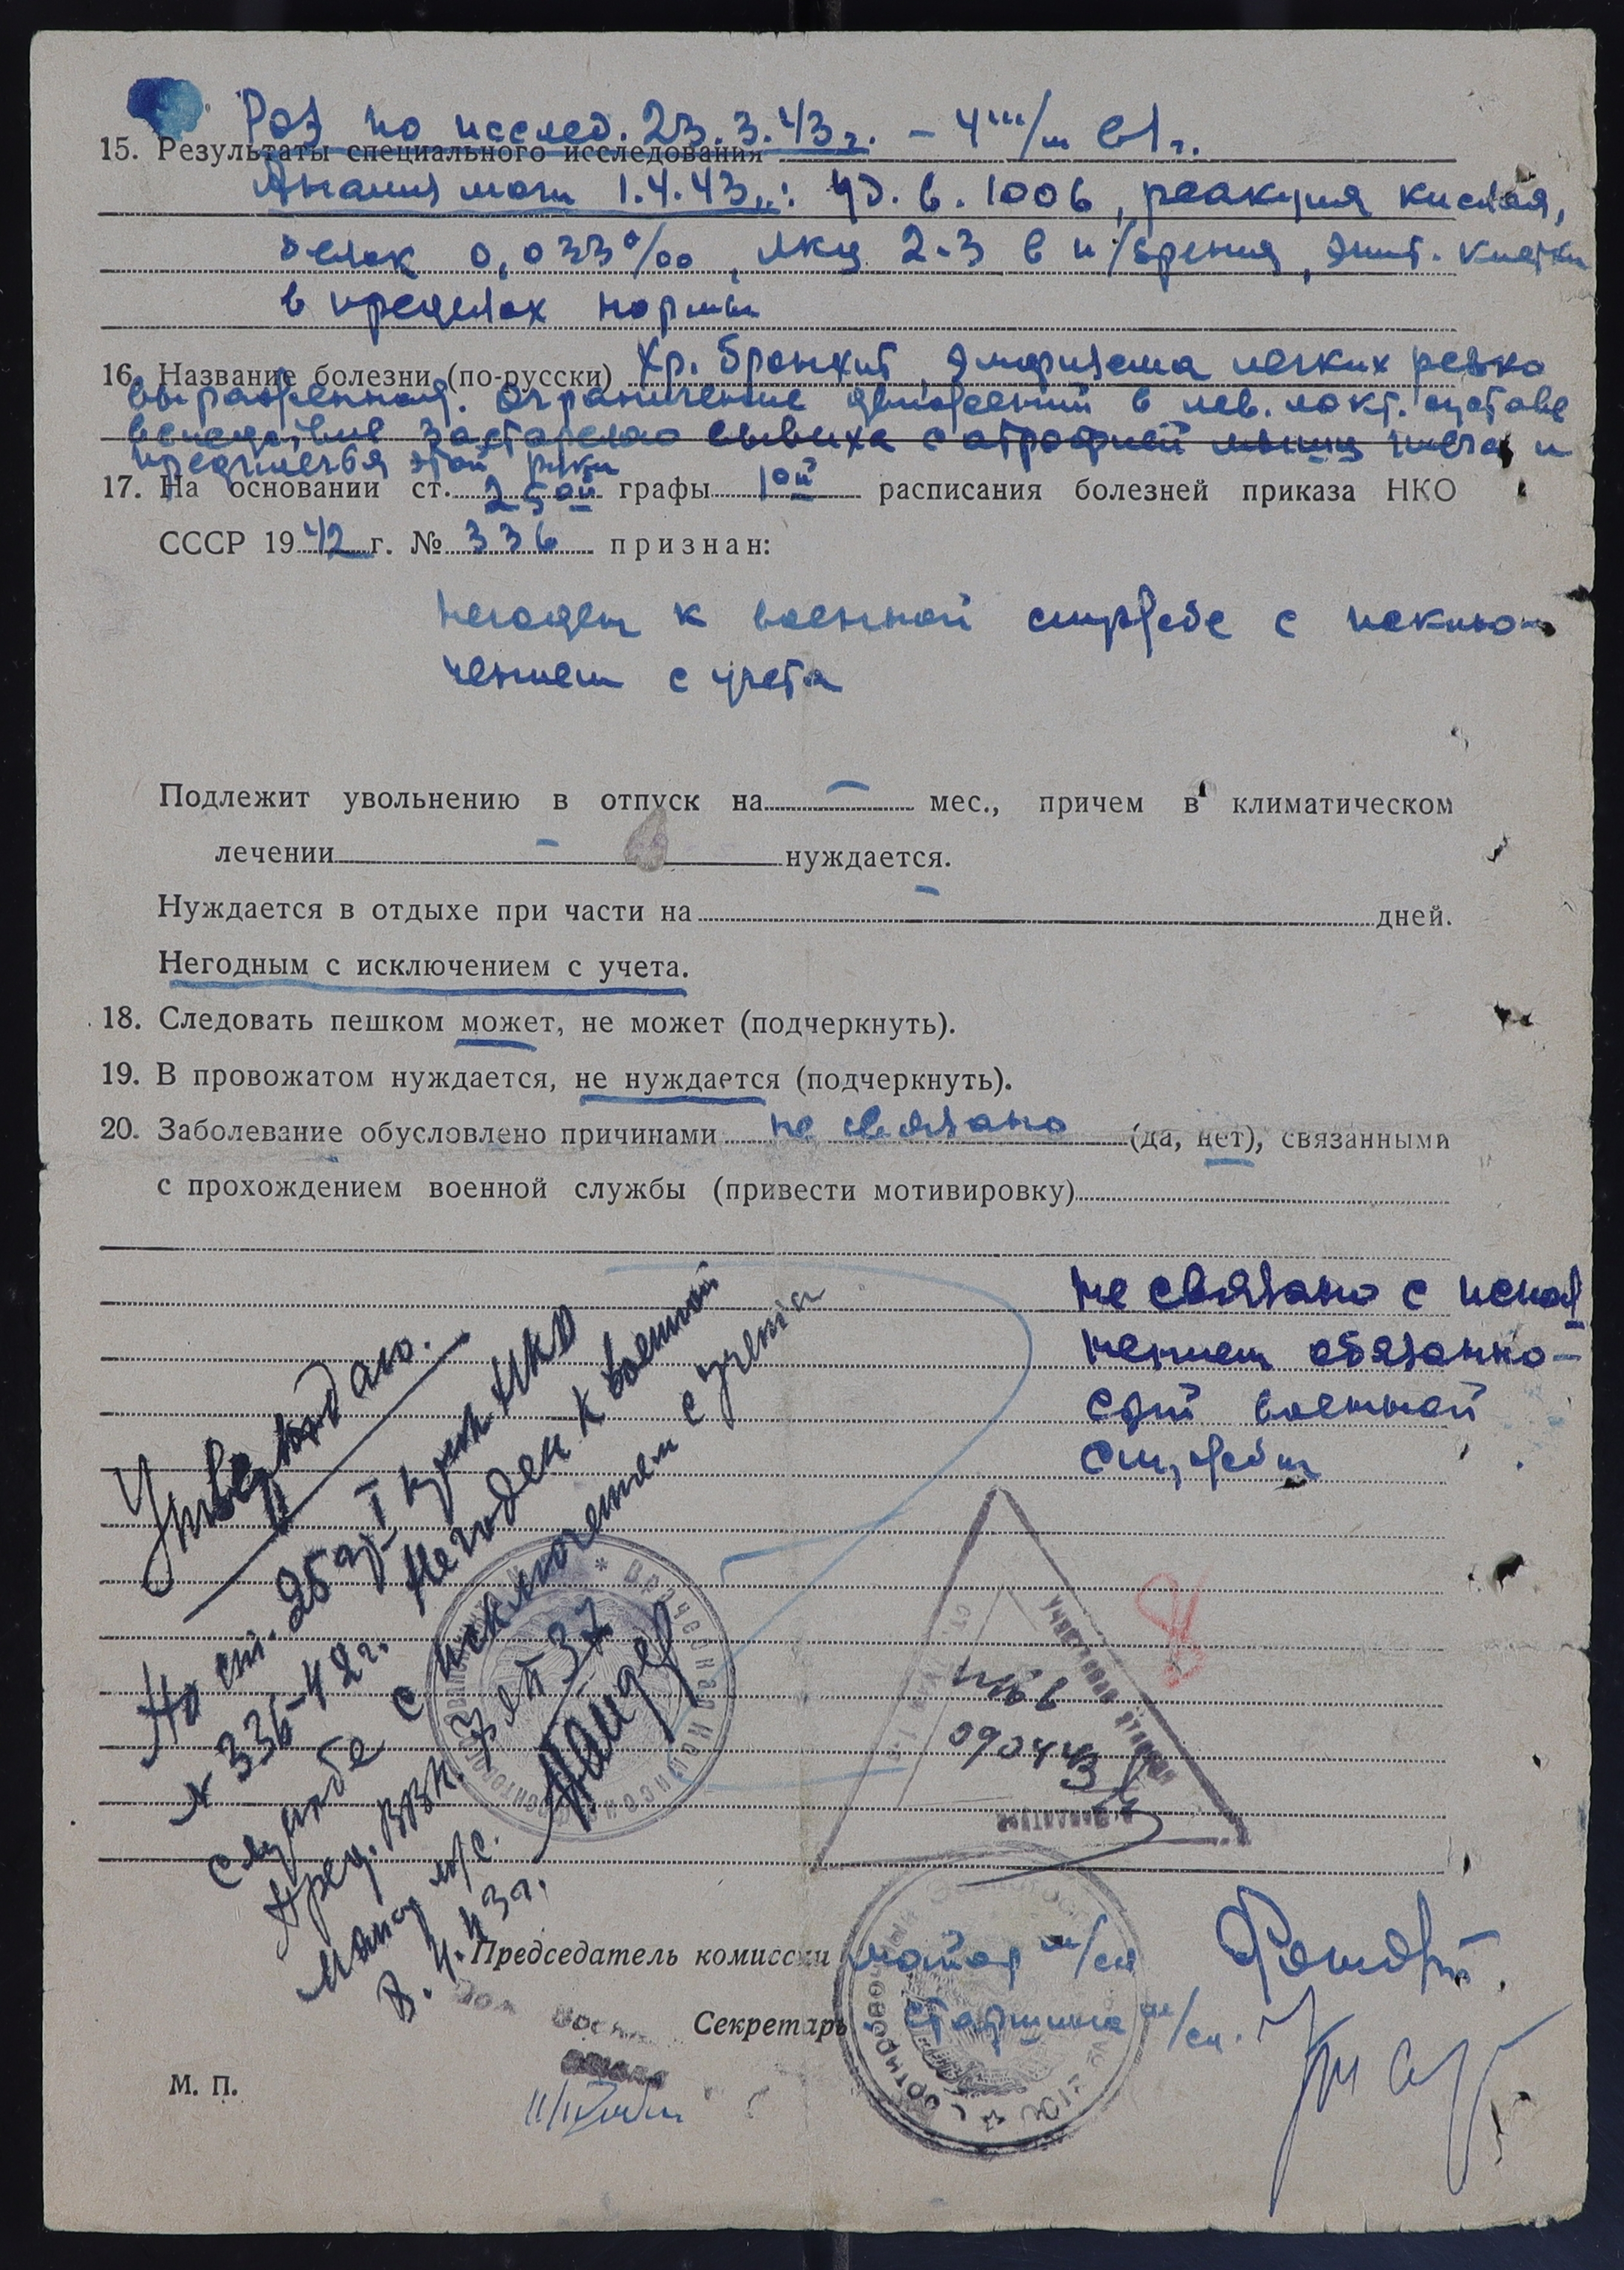 Роэ по исслед. 23.3.43 г. – 4 м/м в 1 г.
15. Результаты специального исследования
Анализ мочи 1.4.43 г.: уд. в. 1006, реакция кислая,
белок 0,033‰, лкц 2-3 в п/зрения, эпит. клетки
в пределах нормы
16. Название болезни (по-русски) Хр. бронхит, эмфизема легких резко
выраженная. Ограничение движений в лев. локт. суставе
вследствие застарелого вывиха с атрофией мышц плеча и
предплечья этой руки
17. На основании ст. 25ой графы 1ой расписания болезней приказа НКО
СССР 1942 г. № 336 признан:
Негоден к военной службе с исклю-
чением с учета
Подлежит увольнению в отпуск на – мес., причем в климатическом
лечении – нуждается.
Нуждается в отдыхе при части на – дней.
Негодным с исключением с учета.
18. Следовать пешком может, не может (подчеркнуть).
19. В провожатом нуждается, не нуждается (подчеркнуть).
20. Заболевание обусловлено причинами не связано (да, нет), связанными
с прохождением военной службы (привести мотивировку)
не связано с испол
нением обязанно-
стей военной
службы
Утверждаю.
По ст. 25 гр I прик НКО
№ 336-42 г. Негоден к военной
службе с исключением с учета
Пред. ВВК
м/с.
8.4.43 г.
Врачебная
090443
Председатель комиссии майор м/сл
Секретарь старшина м/сл.
М. П.